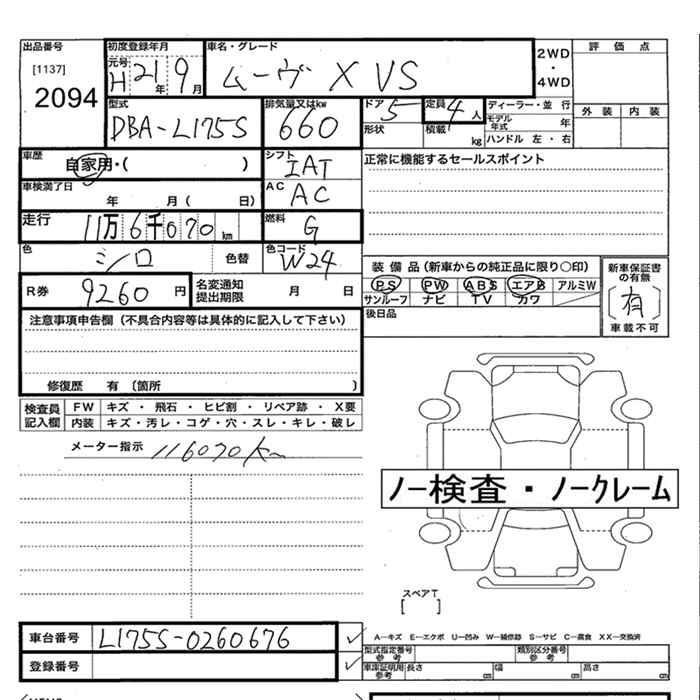 出品番号
[1137]
2094
初度登録年月
元号
H 21 年 9 月
車名・グレード
ムーヴ X VS
2WD
・
4WD
評価点
外装 内装
型式
DBA-L175S
排気量又はkw
660
ドア 5
形状
定員 4 人
積載 kg
ディーラー・並行
モデル年式 年
ハンドル 左・右
車歴
自家用・( )
シフト
IAT
正常に機能するセールスポイント
車検満了日
年 月( 日)
AC
AC
走行
11万6千070 km
燃料
G
色
シロ
色替
色コード
W24
装備品(新車からの純正品に限り○印)
PS PW ABS エアB アルミW
サンルーフ ナビ TV カワ
新車保証書の有無
[有]
車載不可
R券
9260 円
名変通知
提出期限
月 日
後日品
注意事項申告欄(不具合内容等は具体的に記入して下さい)
修復歴 有 〔箇所 〕
検査員記入欄
FW キズ・飛石・ヒビ割・リペア跡・X要
内装 キズ・汚レ・コゲ・穴・スレ・キレ・破レ
メーター指示 116070 km
ノー検査・ノークレーム
スペアT
[ ]
車台番号
L175S-0260676
登録番号
A-キズ E-エクボ U-凹み W-補修跡 S-サビ C-腐食 XX-交換済
型式指定番号
参考
類別区分番号
参考
車庫証明用
参考
長さ cm 幅 cm 高さ cm